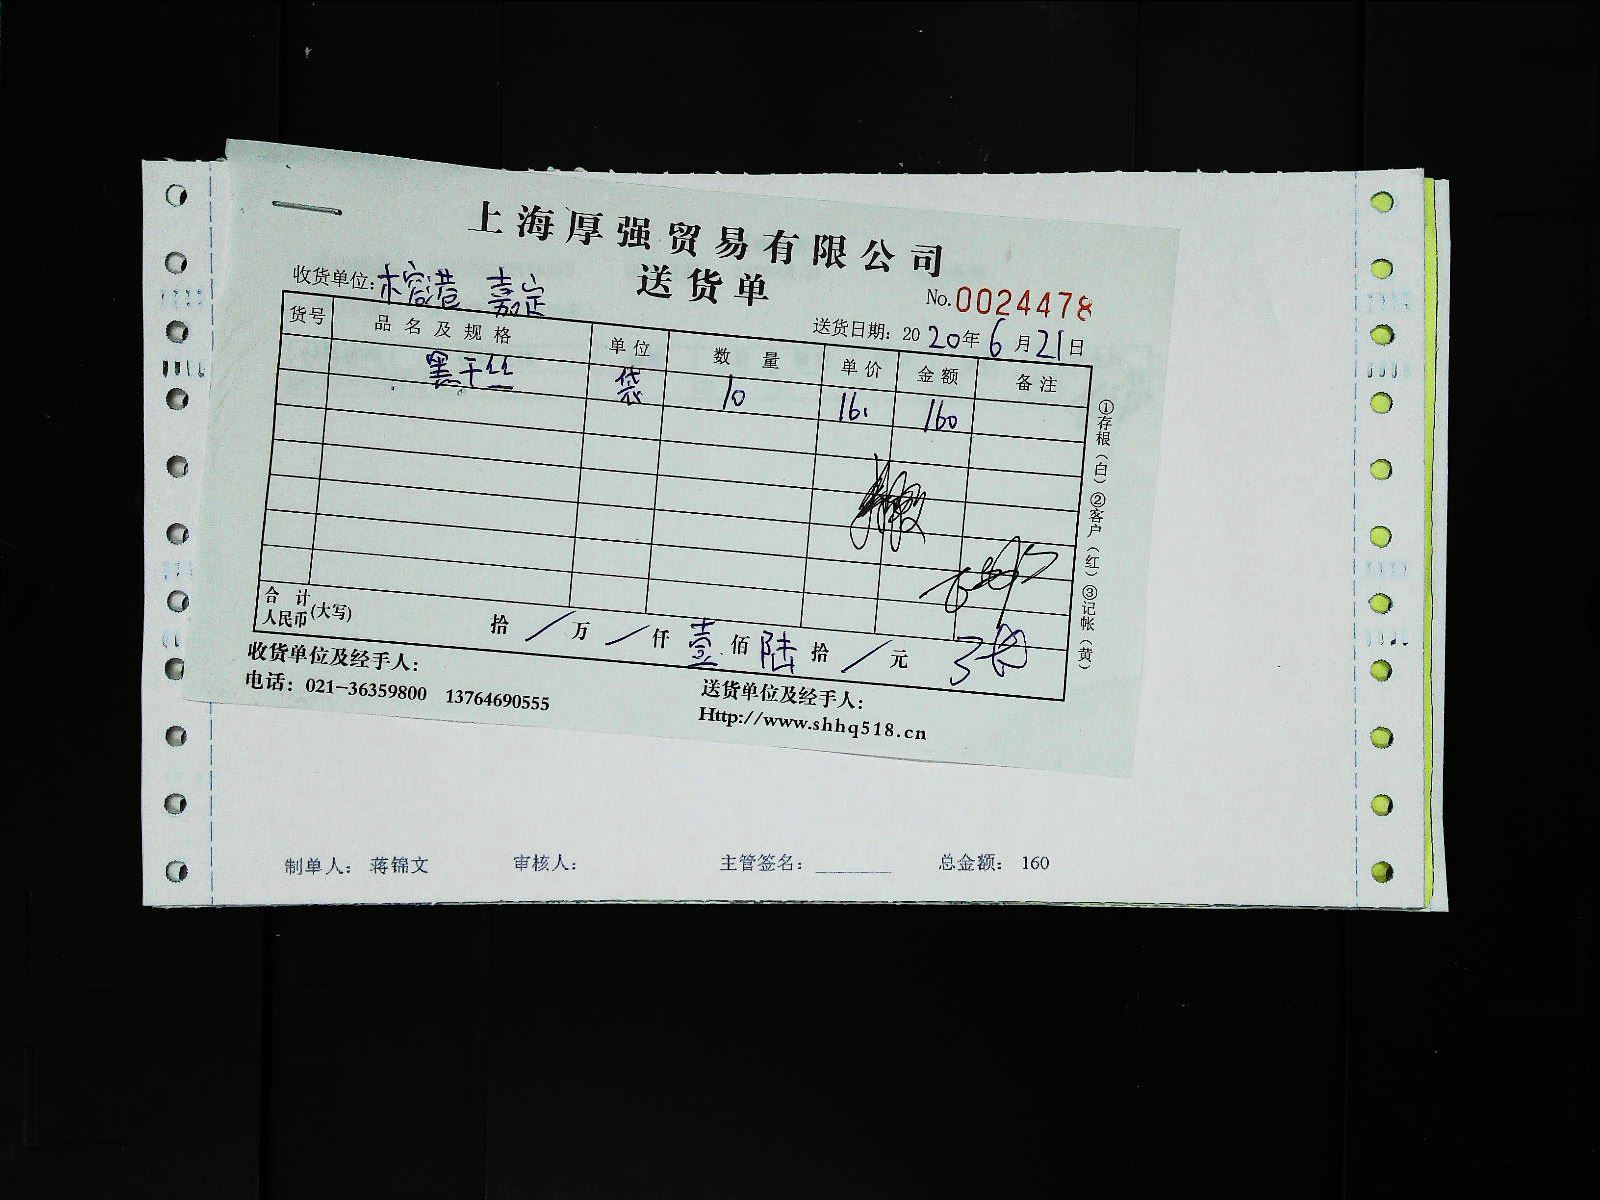 上海厚强贸易有限公司
送货单
收货单位: 榕港 嘉定
No. 0024478
送货日期: 2020年6月21日
货号 品名及规格 单位 数量 单价 金额 备注
黑干丝 袋 10 16. 160
合计人民币(大写) 拾/万/仟壹佰陆拾/元
收货单位及经手人:
电话: 021-36359800 13764690555
送货单位及经手人:
Http://www.shhq518.cn
①存根(白)②客户(红)③记帐(黄)
制单人: 蒋锦文 审核人: 主管签名: 总金额: 160